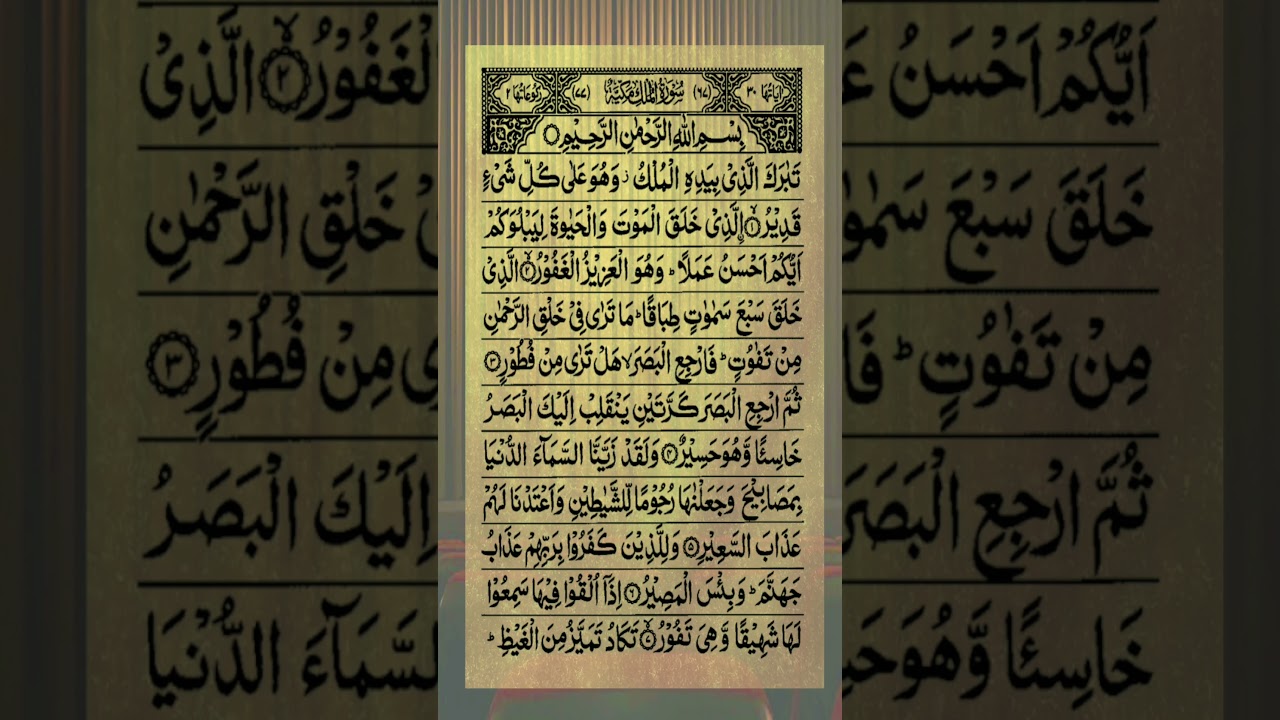 اٰيَاتُهَا ٣٠ (٦٧) سُوْرَةُ الْمُلْكِ مَكِّيَّةٌ (٧٧) رُكُوْعَاتُهَا ٢
بِسْمِ اللّٰهِ الرَّحْمٰنِ الرَّحِيْمِ
تَبٰرَكَ الَّذِيْ بِيَدِهِ الْمُلْكُ ز وَهُوَ عَلٰى كُلِّ شَيْءٍ
قَدِيْرُ ۙ﴿١﴾ اِ۟لَّذِيْ خَلَقَ الْمَوْتَ وَالْحَيٰوةَ لِيَبْلُوَكُمْ
اَيُّكُمْ اَحْسَنُ عَمَلًا ؕ وَهُوَ الْعَزِيْزُ الْغَفُوْرُ ۙ﴿٢﴾ الَّذِيْ
خَلَقَ سَبْعَ سَمٰوٰتٍ طِبَاقًا ؕ مَا تَرٰى فِيْ خَلْقِ الرَّحْمٰنِ
مِنْ تَفٰوُتٍ ؕ فَارْجِعِ الْبَصَرَ ۙ هَلْ تَرٰى مِنْ فُطُوْرٍ ﴿٣﴾
ثُمَّ ارْجِعِ الْبَصَرَ كَرَّتَيْنِ يَنْقَلِبْ اِلَيْكَ الْبَصَرُ
خَاسِئًا وَّهُوَ حَسِيْرٌ ﴿٤﴾ وَلَقَدْ زَيَّنَّا السَّمَآءَ الدُّنْيَا
بِمَصَابِيْحَ وَجَعَلْنٰهَا رُجُوْمًا لِّلشَّيٰطِيْنِ وَاَعْتَدْنَا لَهُمْ
عَذَابَ السَّعِيْرِ ﴿٥﴾ وَلِلَّذِيْنَ كَفَرُوْا بِرَبِّهِمْ عَذَابُ
جَهَنَّمَ ؕ وَبِئْسَ الْمَصِيْرُ ﴿٦﴾ اِذَآ اُلْقُوْا فِيْهَا سَمِعُوْا
لَهَا شَهِيْقًا وَّهِيَ تَفُوْرُ ۙ﴿٧﴾ تَكَادُ تَمَيَّزُ مِنَ الْغَيْظِ ؕ